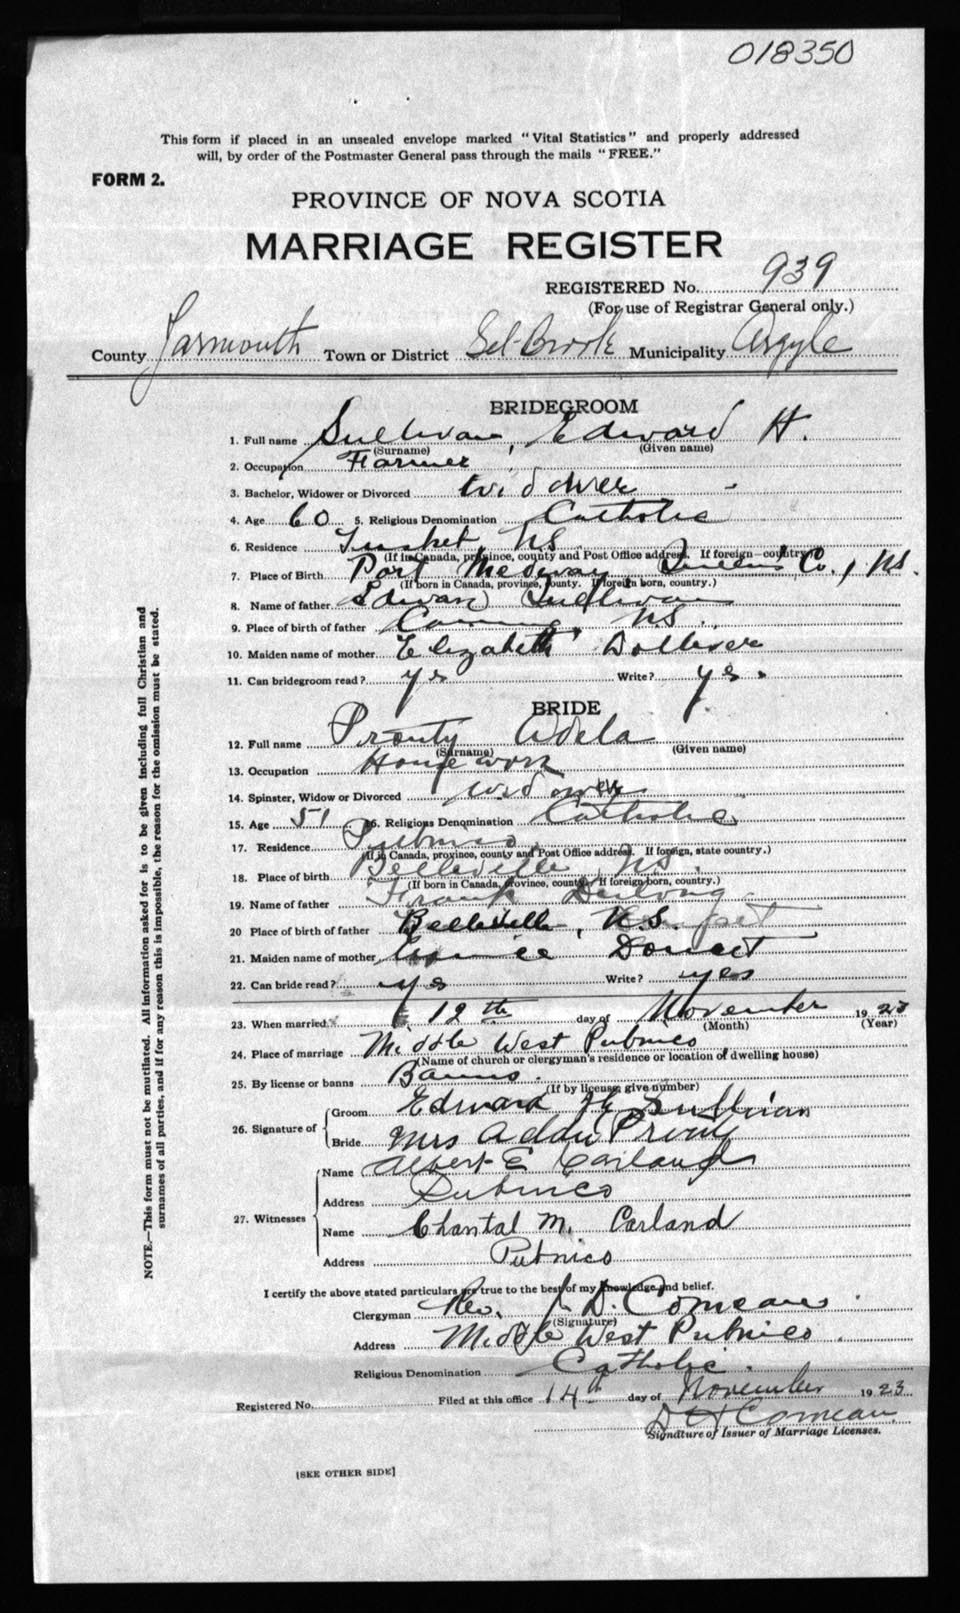 018350
This form if placed in an unsealed envelope marked "Vital Statistics" and properly addressed
will, by order of the Postmaster General pass through the mails "FREE."
FORM 2.
PROVINCE OF NOVA SCOTIA
MARRIAGE REGISTER
REGISTERED No. 939
(For use of Registrar General only.)
County Yarmouth Town or District Brook Municipality Argyle
BRIDEGROOM
1. Full name Sullivan, Edward H.
(Surname) (Given name)
2. Occupation Farmer
3. Bachelor, Widower or Divorced widower
4. Age 60 5. Religious Denomination Catholic
6. Residence Tusket NS
(If in Canada, province, county and Post Office address. If foreign country)
7. Place of Birth Port Medway Queens Co., NS.
(If born in Canada, province, county. If foreign born, country.)
8. Name of father Edward Sullivan
9. Place of birth of father NS.
10. Maiden name of mother Elizabeth Dolliver
11. Can bridegroom read? yes Write? yes.
BRIDE
12. Full name Prouty Adela
(Surname) (Given name)
13. Occupation House work
14. Spinster, Widow or Divorced widower
15. Age 51 16. Religious Denomination Catholic
17. Residence Pubnico
(If in Canada, province, county and Post Office address. If foreign, state country.)
18. Place of birth Belleville, NS.
(If born in Canada, province, county. If foreign born, country.)
19. Name of father Frank
20 Place of birth of father Belleville, N.S.
21. Maiden name of mother Doucet
22. Can bride read? yes Write? yes
23. When married 12th day of November 1923
(Month) (Year)
24. Place of marriage Middle West Pubnico
(Name of church or clergyman's residence or location of dwelling house)
25. By license or banns Banns.
(If by license, give number)
26. Signature of
Groom Edward H Sullivan
Bride Mrs Addie Prouty
27. Witnesses
Name Albert E Carland
Address Pubnico
Name Chantal M. Carland
Address Pubnico
I certify the above stated particulars are true to the best of my knowledge and belief.
Clergyman Rev. D. Comeau
(Signature)
Address Middle West Pubnico.
Religious Denomination Catholic.
Registered No. Filed at this office 14th day of November 1923
D H Comeau
Signature of Issuer of Marriage Licenses.
[SEE OTHER SIDE]
NOTE.—This form must not be mutilated. All information asked for is to be given including full Christian and
surnames of all parties, and if for any reason this is impossible, the reason for the omission must be stated.